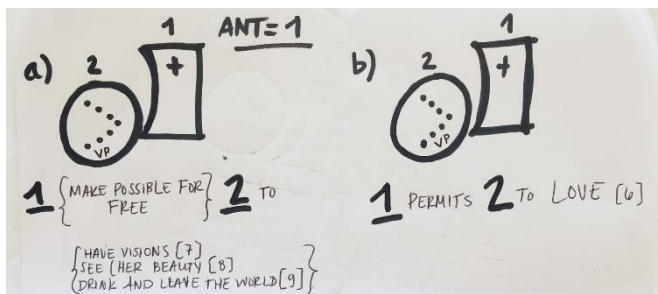 ANT=1
a)
1
+
2
VP
1 {MAKE POSSIBLE FOR} 2 TO
FREE
{HAVE VISIONS [7]
SEE (HER BEAUTY [8]
DRINK AND LEAVE THE WORLD [9]}
b)
1
+
2
VP
1 PERMITS 2 TO LOVE [6]